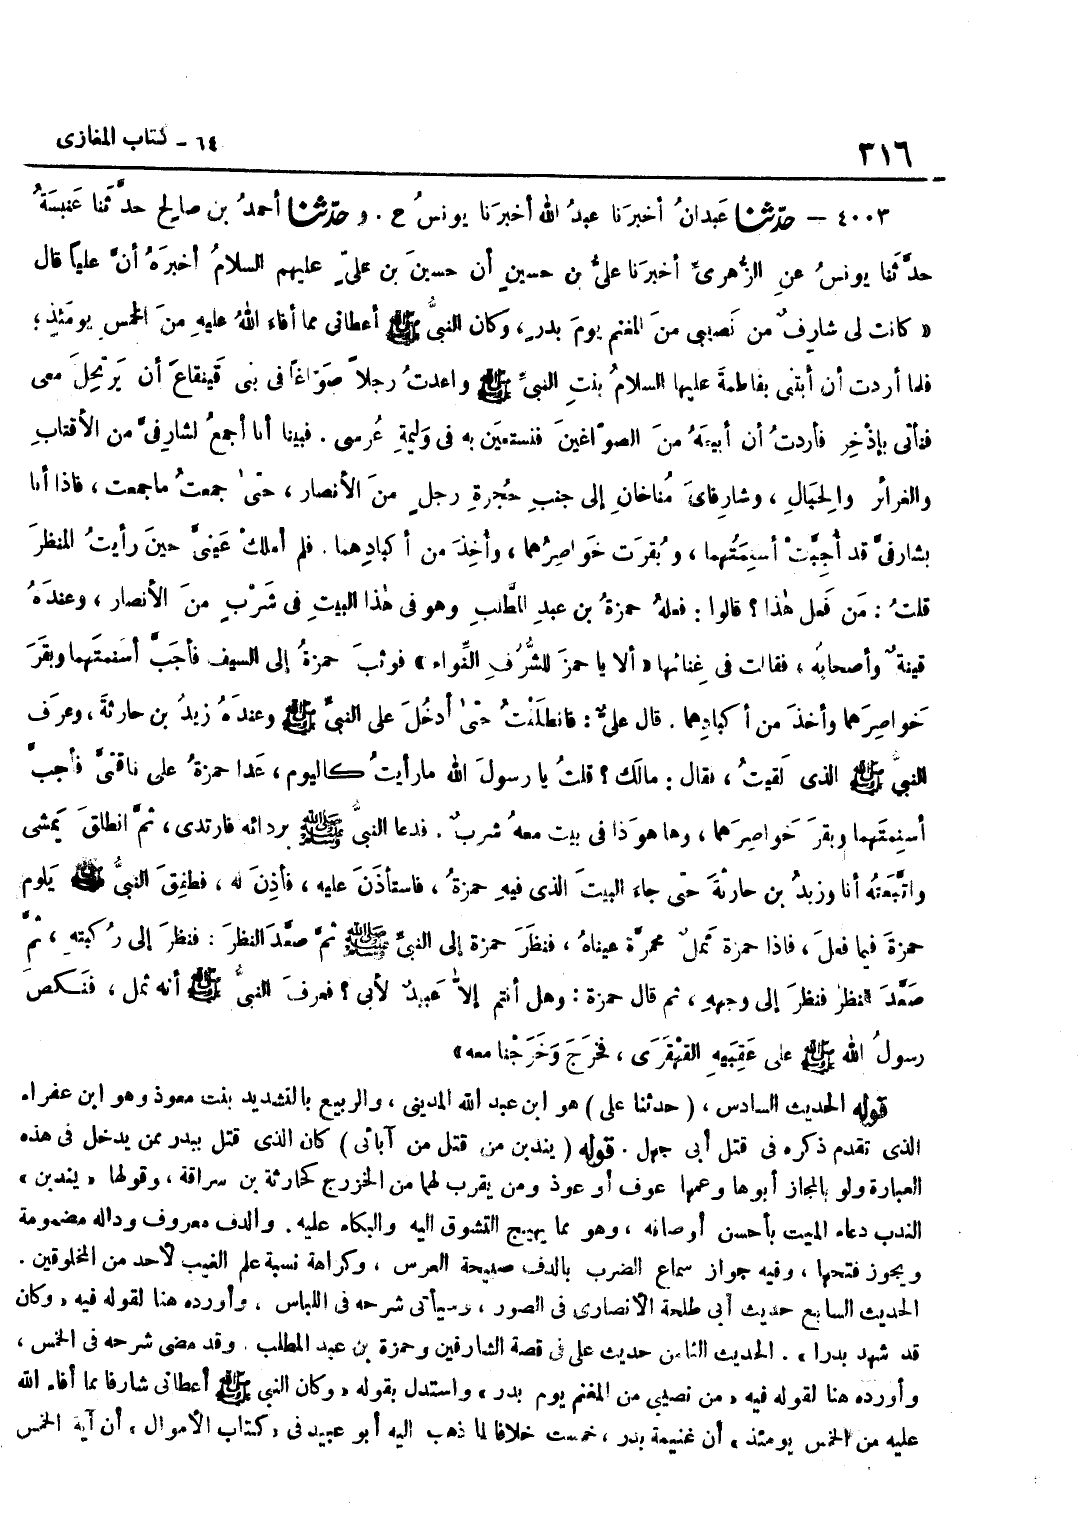 ٣١٦
٦٤ - كتاب المغازى
٤٠٠٣ - حدّثنا عَبدانُ أخبرَنا عبدُ الله أخبرَنا يونسُ ح . و حدّثنا أحمدُ بن صالح حدَّثنا عَنبسَةُ
حدَّثنا يونسُ عنِ الزُّهرىِّ أخبرَنا علىُّ بن حسينٍ أن حسينَ بن علىٍّ عليهم السلامُ أخبرَهُ أنَّ علياً قال
« كانت لى شارِفٌ من نَصيبى منَ المغنم يومَ بدرٍ ، وكان النبىُّ ﷺ أعطانى مما أفاء اللهُ عليهِ منَ الخُمس يومَئذٍ ؛
فلما أردت أن أبتنى بفاطمةَ عليها السلامُ بنتِ النبىِّ ﷺ واعدتُ رجلاً صَوّاغاً فى بنى قَينقاعَ أن يَرتحِلَ معى
فنأتى بإذْخِرٍ فأردتُ أن أبيعَهُ منَ الصوّاغينَ فنستعينَ به فى وَليمةِ عُرسى . فبينا أنا أجمعُ لشارِفىَّ من الأقتابِ
والغرائر والحِبَالِ ، وشارِفاىَ مُناخانِ إلى جنبِ حُجرةِ رجلٍ منَ الأنصار ، حتى جمعتُ ماجمعت ، فاذا أنا
بشارفىَّ قد أُجِبَّتْ أسنِمَتُهما ، وبُقرَت خَواصِرُهما ، وأُخِذَ من أكبادِهما . فلم أملكْ عَينىَّ حينَ رأيتُ المنظرَ
قلتُ : مَن فَعل هٰذا ؟ قالوا : فعلهُ حمزةُ بن عبدِ المطَّلبِ وهو فى هٰذا البيتِ فى شَرْبٍ منَ الأنصار ، وعندَهُ
قينةٌ وأصحابُه ، فقالت فى غِنائها « ألا يا حمزَ للشُّرُفِ النِّواء » فوثبَ حمزةُ إلى السيف فأجَبَّ أسنمتَهما وبقرَ
خَواصِرَهما وأخذَ من أكبادِهما . قال علىٌّ : فانطلَقْتُ حتىٰ أدخُلَ على النبىِّ ﷺ وعندَهُ زيدُ بن حارثةَ ، وعرَف
النبىُّ ﷺ الذى لَقيتُ ، فقال : مالَك ؟ قلتُ يا رسولَ الله مارأيتُ كاليوم ، عَدا حمزةُ على ناقتىَّ فأجبَّ
أسنِمتَهما وبقرَ خَواصِرَهما ، وها هوَ ذا فى بيت معهُ شربٌ . فدعا النبىُّ ﷺ بردائه فارتدى ، ثمَّ انطلقَ يَمشى
واتَّبَعتُه أنا وزيدُ بن حارثةَ حتى جاء البيتَ الذى فيهِ حمزةُ ، فاستأذَنَ عليه ، فأذِنَ له ، فطفِقَ النبىُّ ﷺ يَلوم
حمزةَ فيما فعلَ ، فاذا حمزة ثَمِلٌ محمرَّة عيناهُ ، فنظَرَ حمزة إلى النبىِّ ﷺ ثمَّ صعَّدَ النظرَ : فنظرَ إلى رُكبتهِ ، ثمَّ
صَعَّدَ النظرَ فنظرَ إلى وجههِ ، ثم قال حمزة : وهل أنتم إلاّ عَبيدٌ لأبى ؟ فعرفَ النبىُّ ﷺ أنه ثمل ، فنَكصَ
رسولُ الله ﷺ على عَقِبَيهِ القهْقَرَى ، فخرَجَ وَخَرَجْنا معه»
قوله الحديث السادس ، ( حدثنا على ) هو ابن عبد الله المدينى ، والربيع بالتشديد بنت معوذ وهو ابن عفراء
الذى تقدم ذكره فى قتل أبى جهل . قوله ( يندبن من قتل من آبائى ) كان الذى قتل ببدر ممن يدخل فى هذه
العبارة ولو بالمجاز أبوها وعمها عوف أو عوذ ومن يقرب لها من الخزرج كحارثة بن سراقة ، وقولها « يندبن »
الندب دعاء الميت بأحسن أوصافه ، وهو مما يهيج التشوق اليه والبكاء عليه . والدف معروف وداله مضمومة
ويجوز فتحها ، وفيه جواز سماع الضرب بالدف صبيحة العرس ، وكراهة نسبة علم الغيب لأحد من المخلوقين .
الحديث السابع حديث أبى طلحة الأنصارى فى الصور ، وسيأتى شرحه فى اللباس ، وأورده هنا لقوله فيه « وكان
قد شهد بدرا » . الحديث الثامن حديث على فى قصة الشارفين وحمزة بن عبد المطلب . وقد مضى شرحه فى الخمس ،
وأورده هنا لقوله فيه « من نصيبى من المغنم يوم بدر » واستدل بقوله « وكان النبى ﷺ أعطانى شارفا مما أفاء الله
عليه من الخمس يومئذ » أن غنيمة بدر ، خمست خلافا لما ذهب اليه أبو عبيد فى « كتاب الأموال » أن آية الخمس